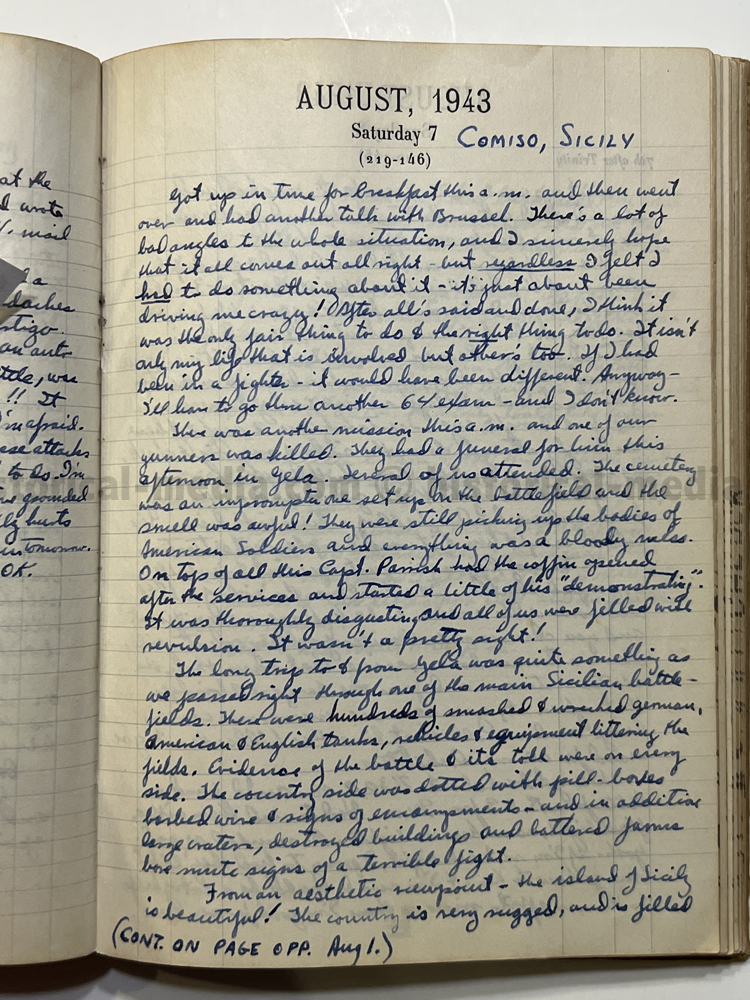 at the
d wrote
V. mail
a
daches
stigo.
an auto
ttle, was
!! It
I'm afraid.
ese attacks
to do. I'm
ve grounded
ly hurts
in tomorrow.
OK.
AUGUST, 1943
Saturday 7 COMISO, SICILY
(219-146)
Got up in time for breakfast this a.m. and then went
over and had another talk with Brussel. There's a lot of
bad angles to the whole situation, and I sincerely hope
that it all comes out all right - but regardless I felt I
had to do something about it - it's just about been
driving me crazy! After all's said and done, I think it
was the only fair thing to do & the right thing to do. It isn't
only my life that is involved but other's too. If I had
been in a fighter - it would have been different. Anyway -
I'll have to go thru another 64 exam - and I don't know.
There was another mission this a.m. and one of our
gunners was killed. They had a funeral for him this
afternoon in Gela. Several of us attended. The cemetery
was an impromptu one set up on the battlefield and the
smell was awful! They were still picking up the bodies of
American Soldiers and everything was a bloody mess.
On top of all this Capt. Parrish had the coffin opened
after the services and started a little of his "demonstrating".
It was thoroughly disgusting and all of us were filled with
revulsion. It wasn't a pretty sight!
The long trip to & from Gela was quite something as
we passed right through one of the main Sicilian battle-
fields. There were hundreds of smashed & wrecked german,
American & English tanks, vehicles & equipment littering the
fields. Evidence of the battle & its toll were on every
side. The country side was dotted with pill-boxes
barbed wire & signs of encampments - and in addition
large craters, destroyed buildings and battered farms
bore mute signs of a terrible fight.
From an aesthetic viewpoint - the island of Sicily
is beautiful! The country is very rugged, and is filled
(CONT. ON PAGE OPP. Aug 1.)